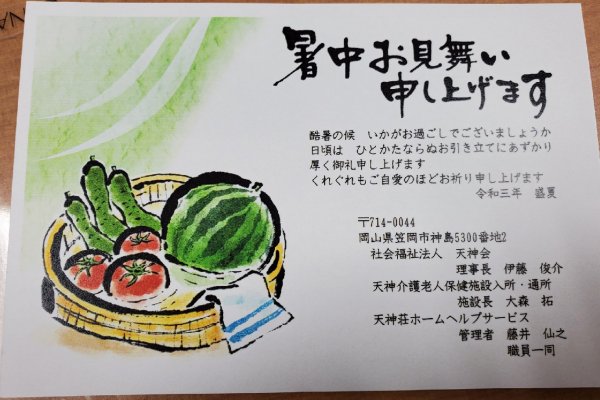 暑中お見舞い
申し上げます
酷暑の候　いかがお過ごしでございましょうか
日頃は　ひとかたならぬお引き立てにあずかり
厚く御礼申し上げます
くれぐれもご自愛のほどお祈り申し上げます
令和三年　盛夏
〒714-0044
岡山県笠岡市神島5300番地2
社会福祉法人　天神会
理事長　伊藤　俊介
天神介護老人保健施設入所・通所
施設長　大森　拓
天神荘ホームヘルプサービス
管理者　藤井　仙之
職員一同